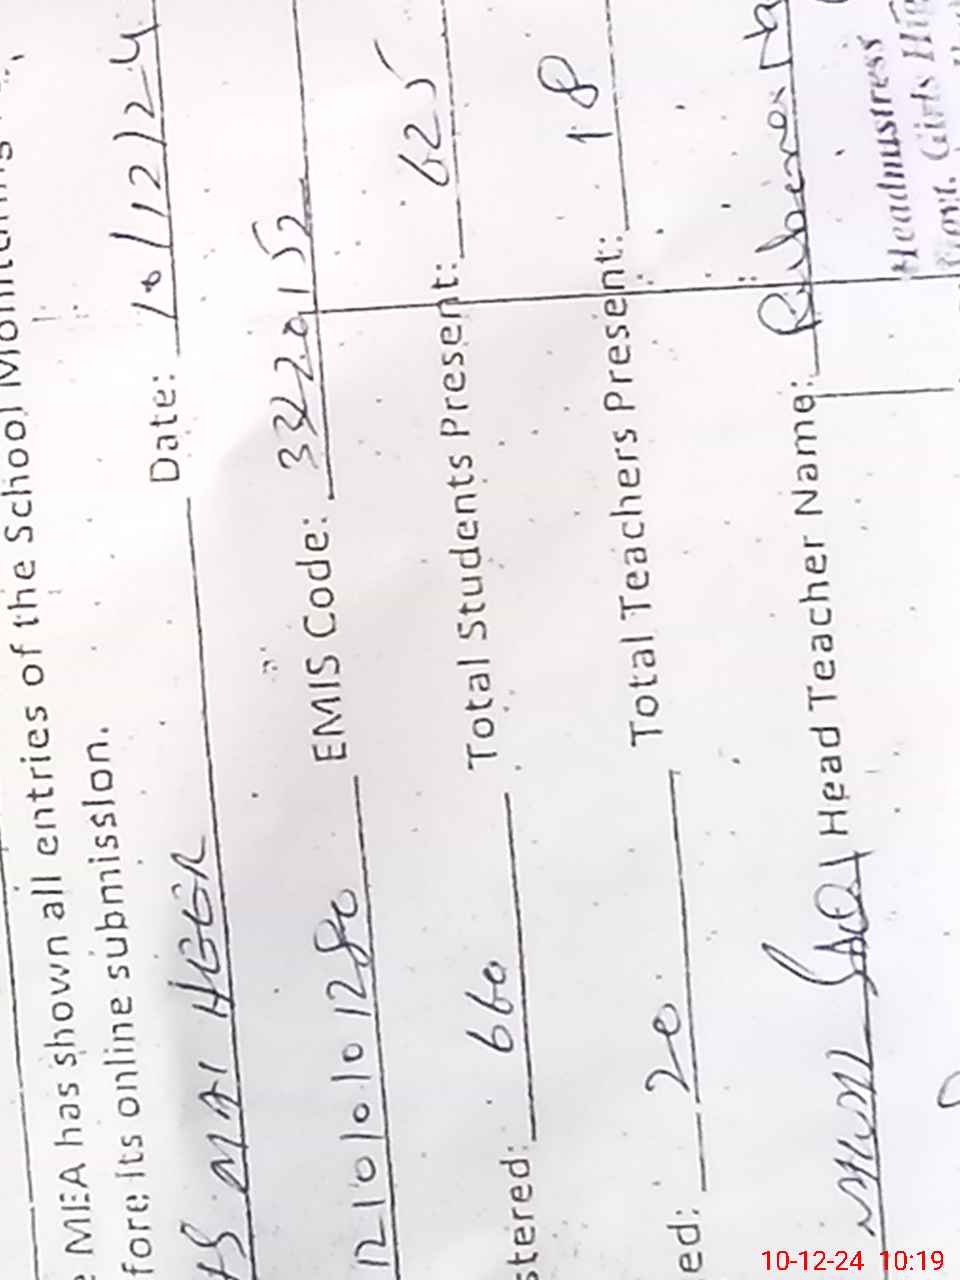 MEA has shown all entries of the School Monitoring
fore its online submission.
MAI HGGR Date: 10/12/24
12101010 1280 EMIS Code: 332015
stered: 660 Total Students Present: 625
ed: 20 Total Teachers Present: 18
SAQI Head Teacher Name: Rubeena
Headmustress
Govt. Girls Hig
10-12-24 10:19